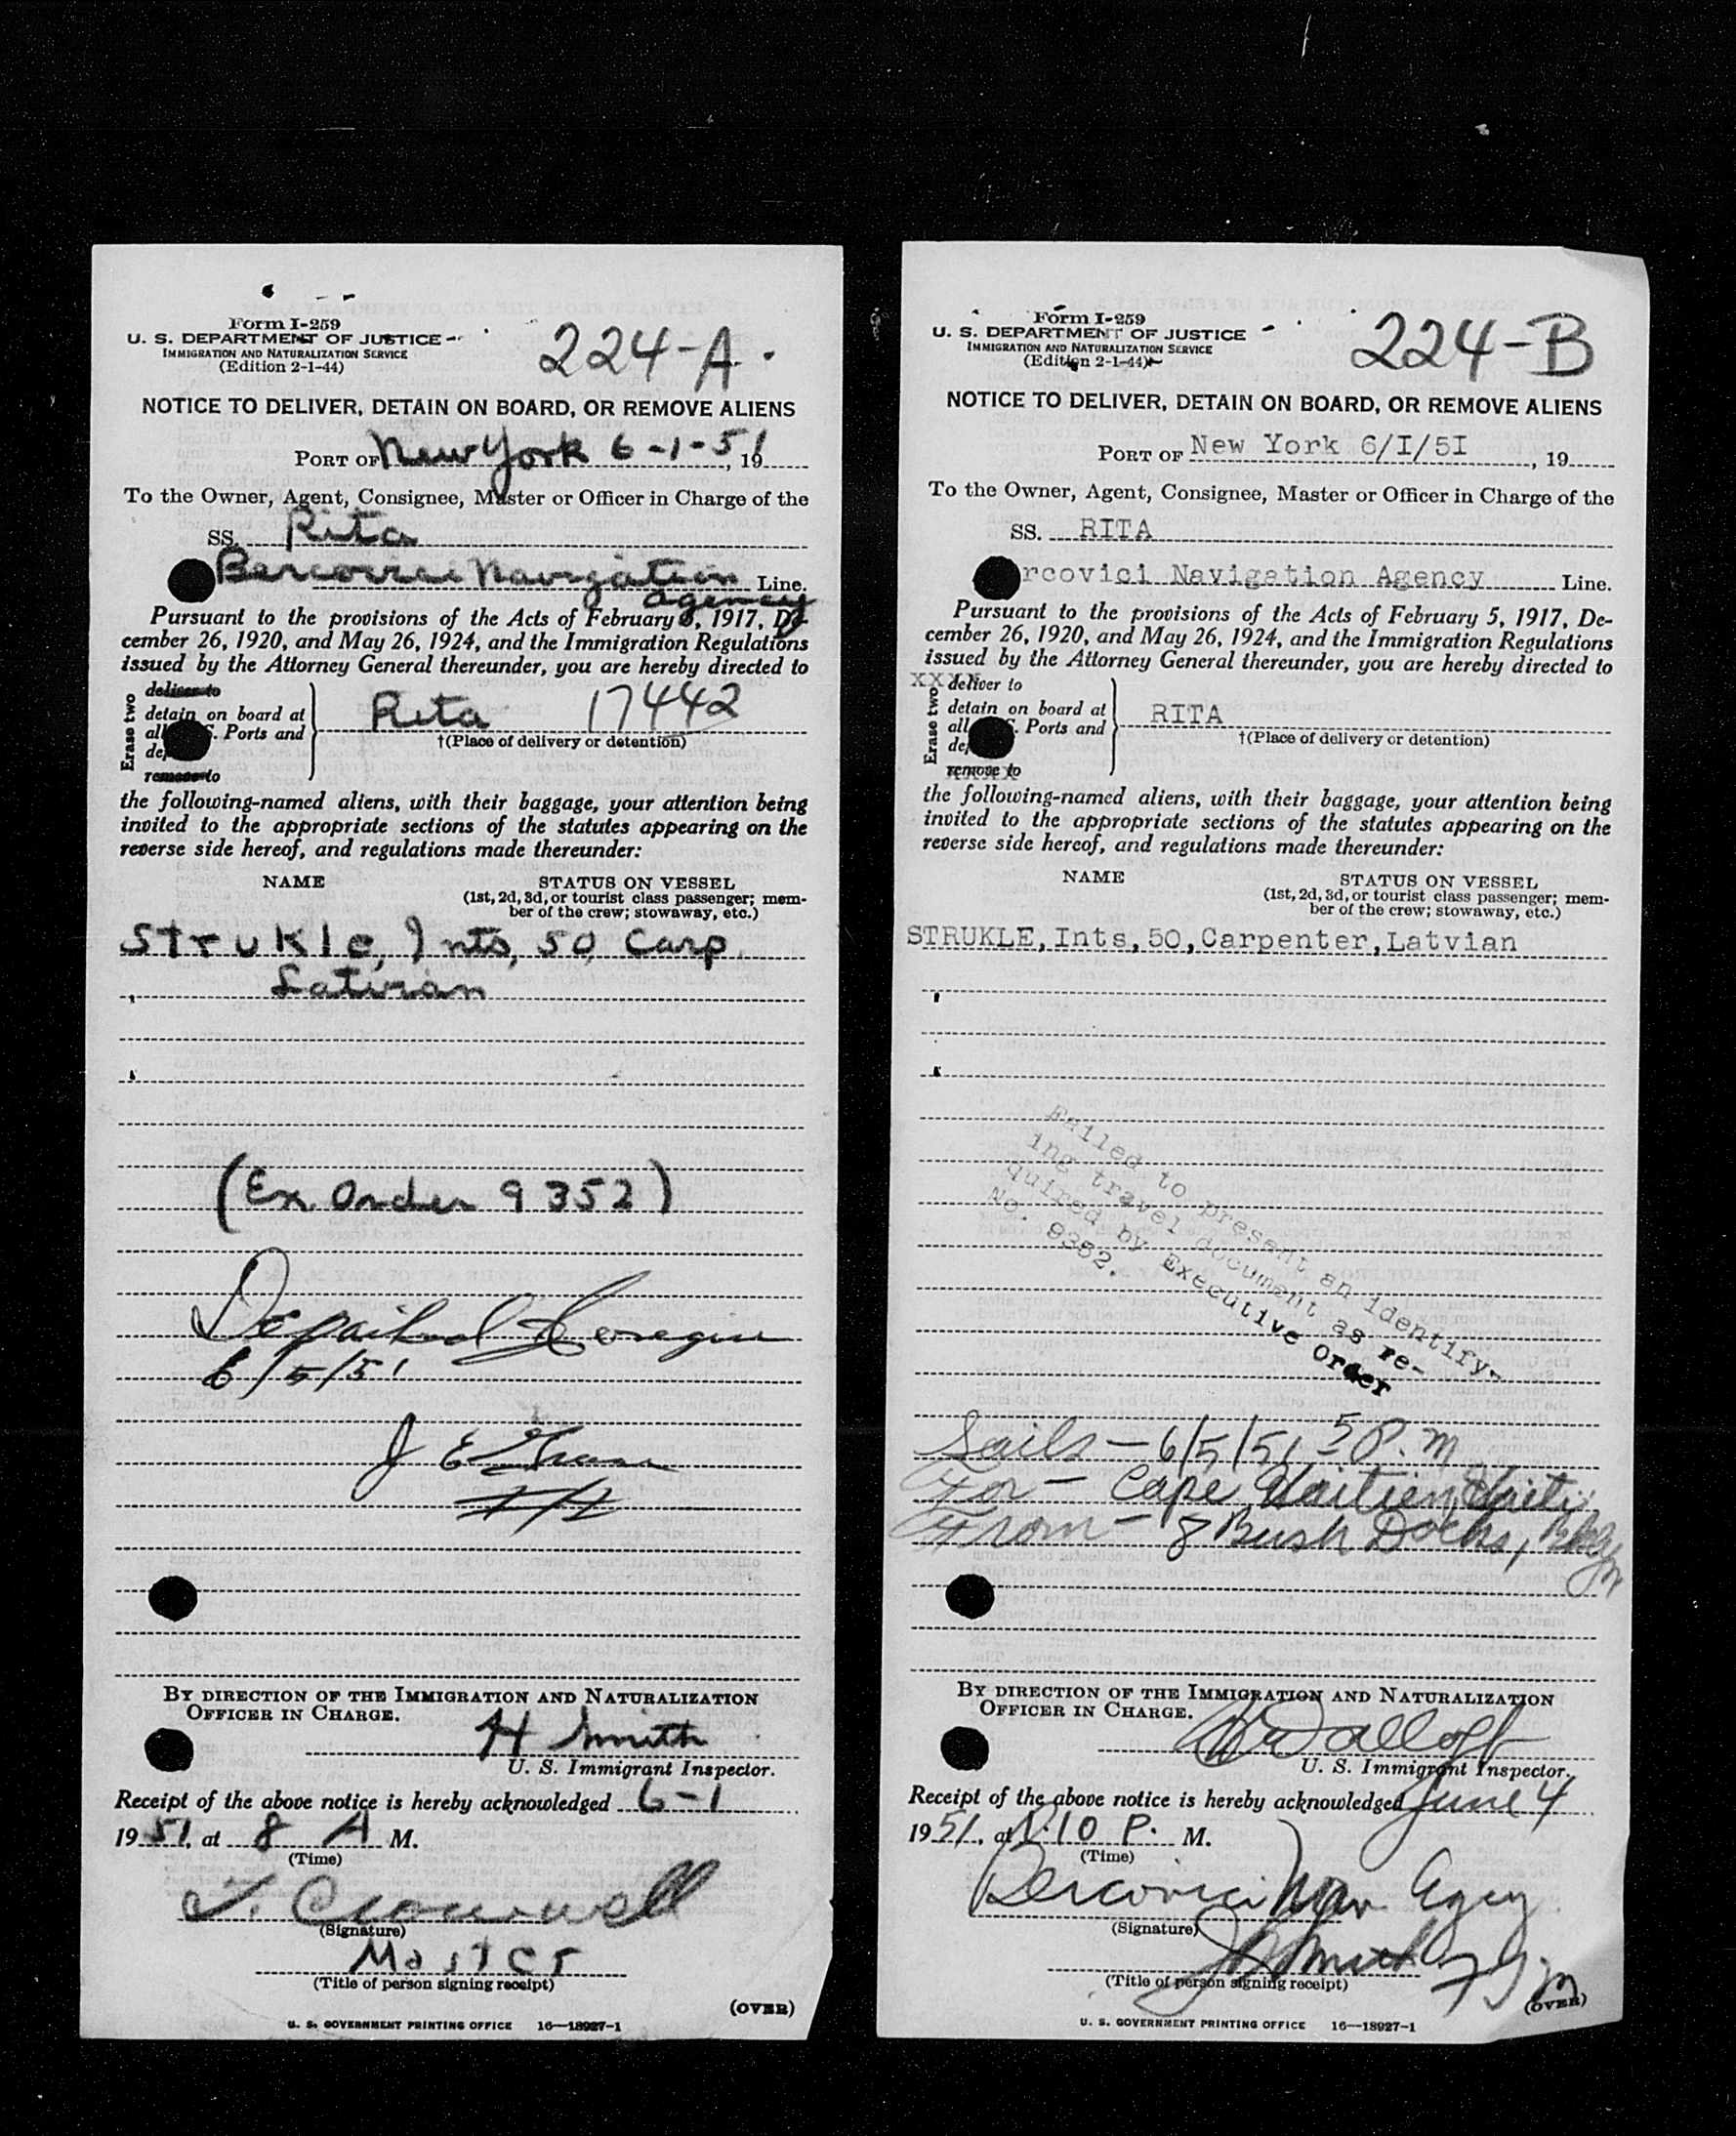 Form I-259
U. S. DEPARTMENT OF JUSTICE
IMMIGRATION AND NATURALIZATION SERVICE
(Edition 2-1-44)
224-A
NOTICE TO DELIVER, DETAIN ON BOARD, OR REMOVE ALIENS
PORT OF New York 6-1-51, 19
To the Owner, Agent, Consignee, Master or Officer in Charge of the
SS. Rita
Bercovici Navigation Line.
agency
Pursuant to the provisions of the Acts of February 5, 1917, De-
cember 26, 1920, and May 26, 1924, and the Immigration Regulations
issued by the Attorney General thereunder, you are hereby directed to
Erase two
deliver to
detain on board at
all . Ports and
de
remove to
Rita 17442
†(Place of delivery or detention)
the following-named aliens, with their baggage, your attention being
invited to the appropriate sections of the statutes appearing on the
reverse side hereof, and regulations made thereunder:
NAME STATUS ON VESSEL
(1st, 2d, 3d, or tourist class passenger; mem-
ber of the crew; stowaway, etc.)
Strukle, Ints, 50, Carp.
Latvian
(Ex Order 9352)
Departed Foreign
6/5/51
J E
H Smith
BY DIRECTION OF THE IMMIGRATION AND NATURALIZATION
OFFICER IN CHARGE.
U. S. Immigrant Inspector.
Receipt of the above notice is hereby acknowledged 6-1
1951, at 8 A M.
(Time)
T. Cromwell
(Signature)
Master
(Title of person signing receipt)
(OVER)
U. S. GOVERNMENT PRINTING OFFICE 16—18927-1
Form I-259
U. S. DEPARTMENT OF JUSTICE
IMMIGRATION AND NATURALIZATION SERVICE
(Edition 2-1-44)
224-B
NOTICE TO DELIVER, DETAIN ON BOARD, OR REMOVE ALIENS
PORT OF New York 6/I/5I, 19
To the Owner, Agent, Consignee, Master or Officer in Charge of the
SS. RITA
rcovici Navigation Agency Line.
Pursuant to the provisions of the Acts of February 5, 1917, De-
cember 26, 1920, and May 26, 1924, and the Immigration Regulations
issued by the Attorney General thereunder, you are hereby directed to
Erase two
XXXX deliver to
detain on board at
all . Ports and
de
remove to
RITA
†(Place of delivery or detention)
the following-named aliens, with their baggage, your attention being
invited to the appropriate sections of the statutes appearing on the
reverse side hereof, and regulations made thereunder:
NAME STATUS ON VESSEL
(1st, 2d, 3d, or tourist class passenger; mem-
ber of the crew; stowaway, etc.)
STRUKLE, Ints, 50, Carpenter, Latvian
Failed to present an identify-
ing travel document as re-
quired by Executive Order
No. 9352.
Sails - 6/5/51 5 P.M
For - Cape Haitien, Haiti
From - 8 Bush Docks, Bklyn
BY DIRECTION OF THE IMMIGRATION AND NATURALIZATION
OFFICER IN CHARGE.
U. S. Immigrant Inspector.
Receipt of the above notice is hereby acknowledged June 4
1951, at 1:10 P. M.
(Time)
Bercovici Nav. Agcy
(Signature)
Smith
(Title of person signing receipt)
(OVER)
U. S. GOVERNMENT PRINTING OFFICE 16—18927-1